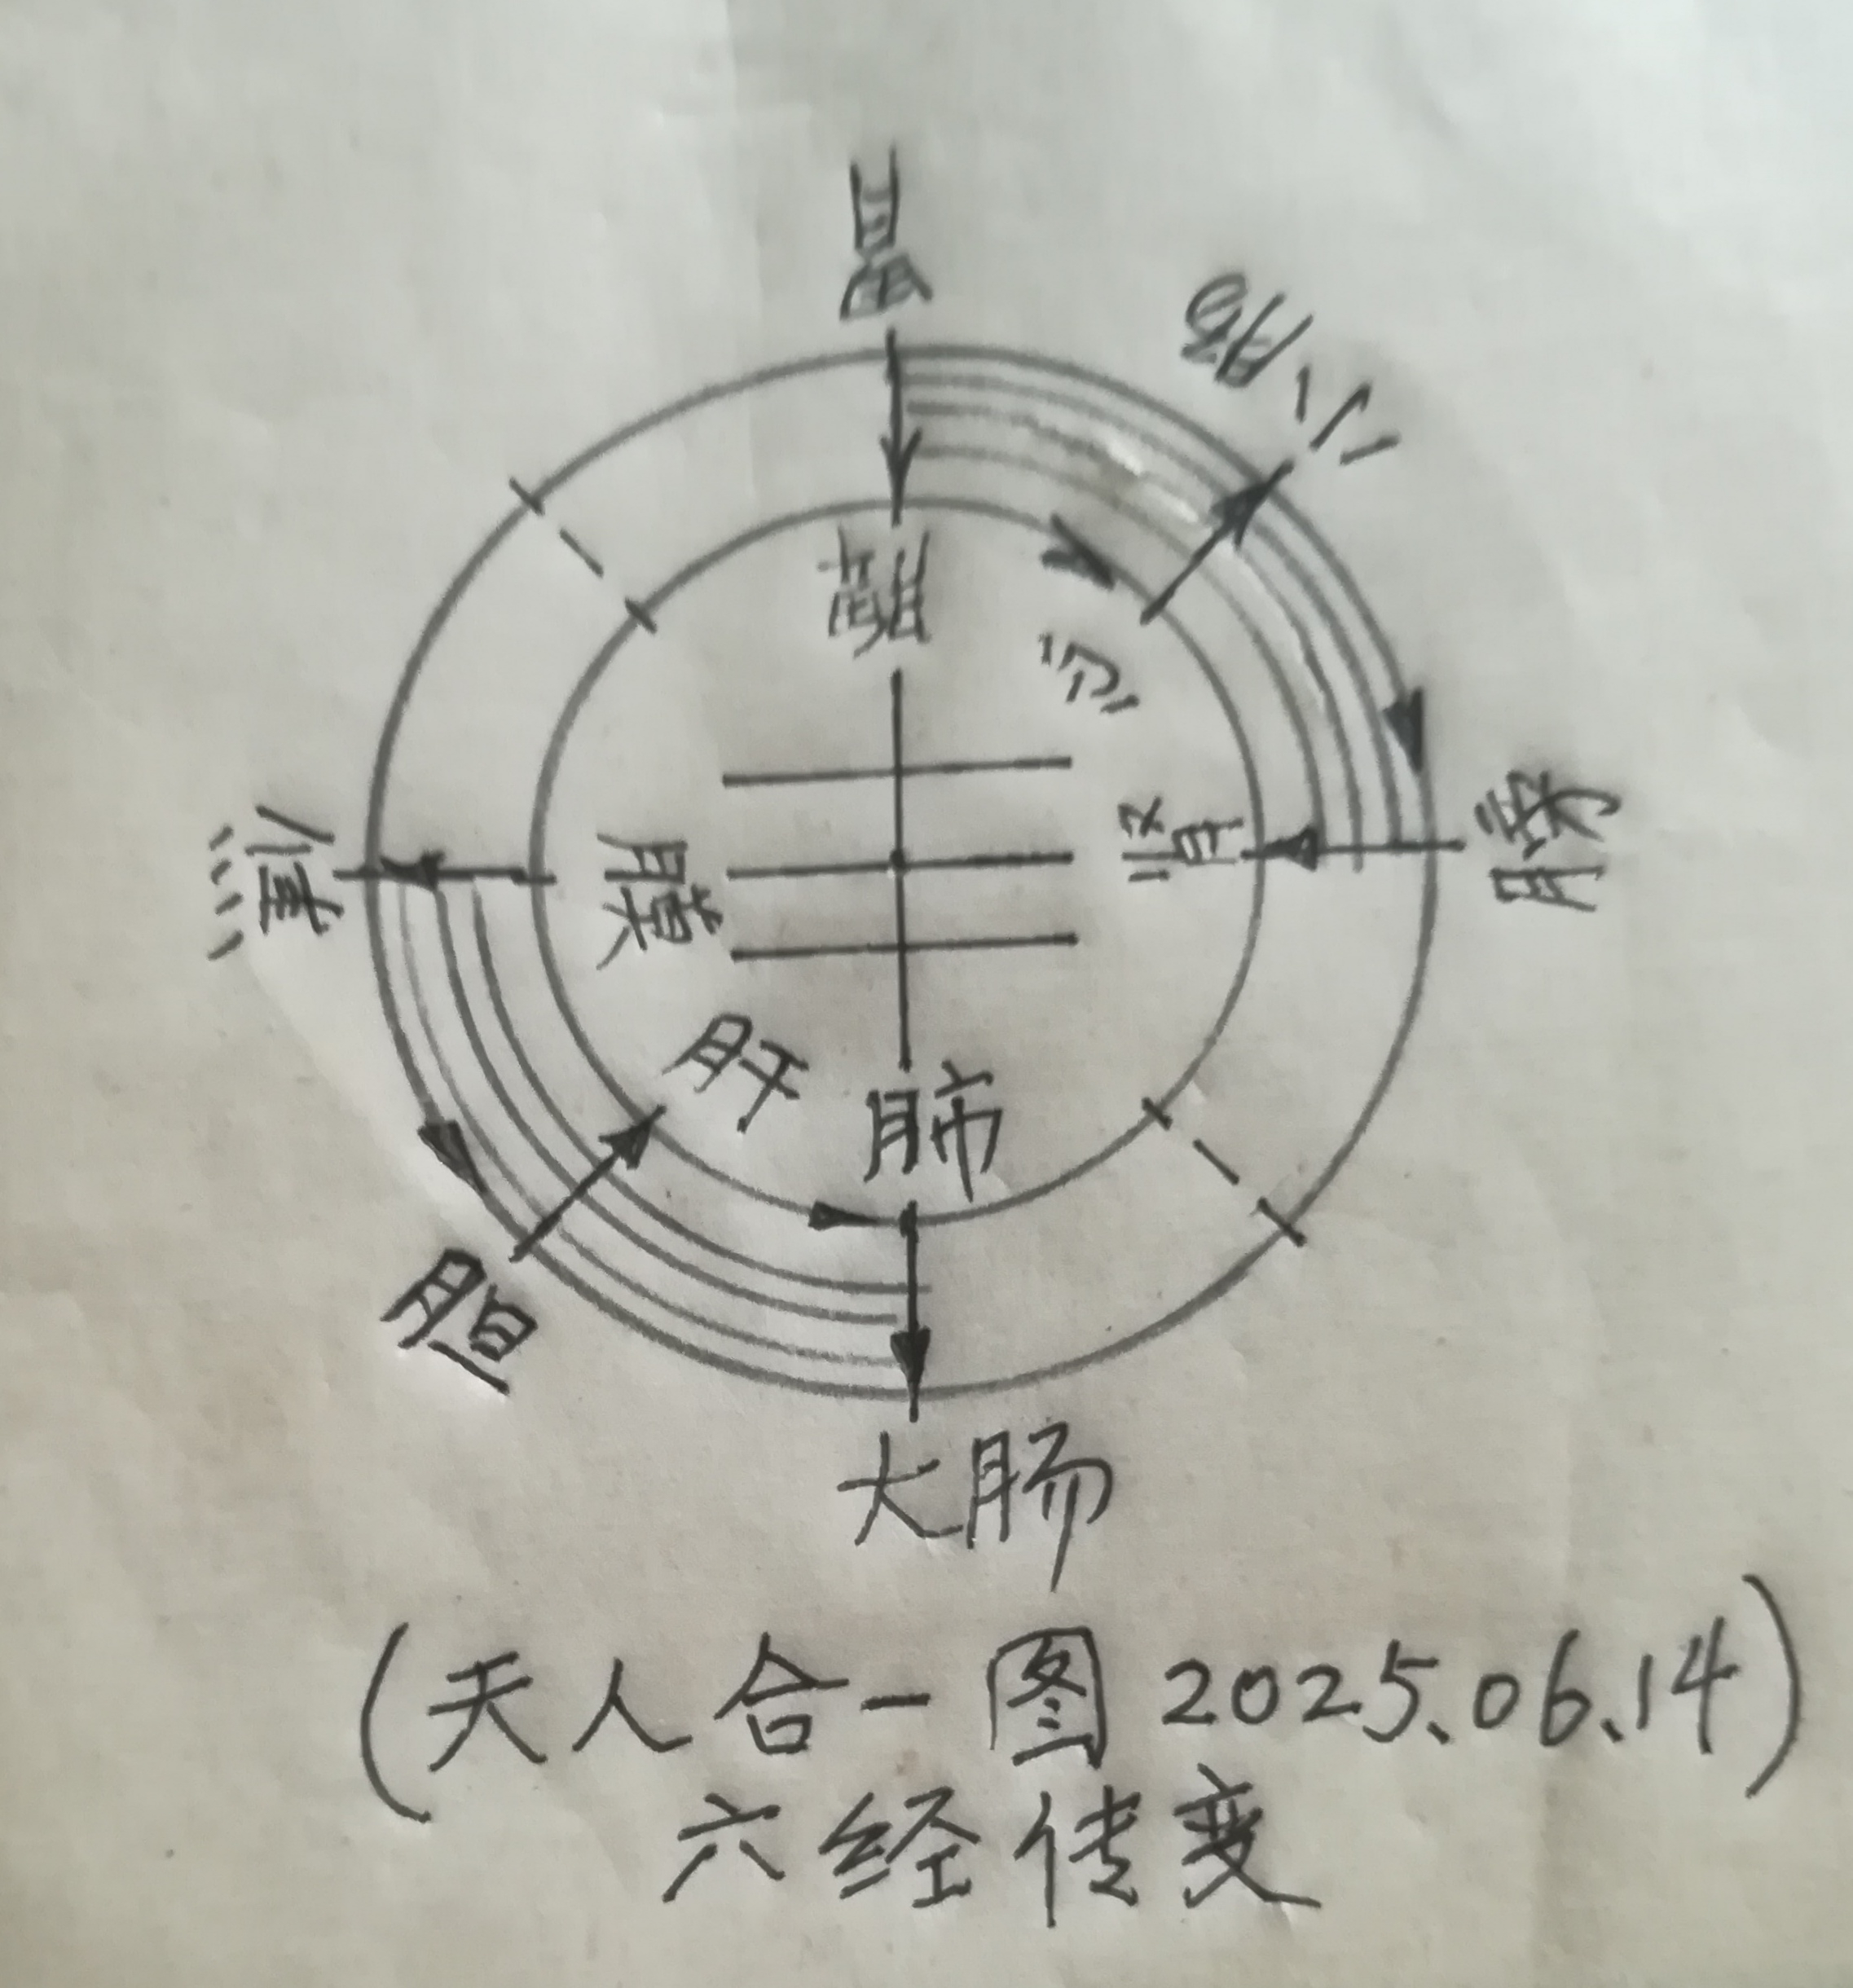 胃
小肠
脾
心
焦
肾
膀
肝
肺
胆
大肠
(天人合一图 2025.06.14)
六经传变